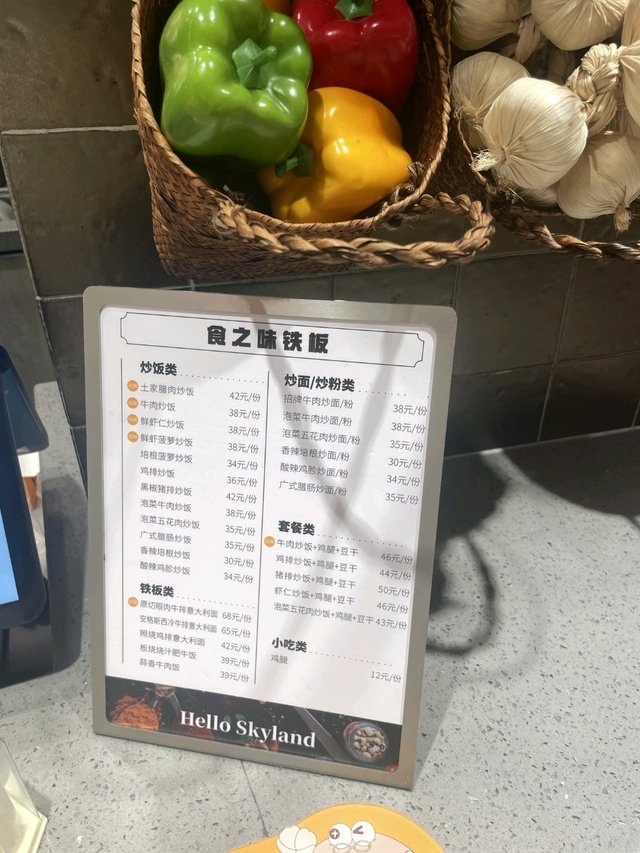 食之味铁板
炒饭类
土家腊肉炒饭 42元/份
牛肉炒饭 38元/份
鲜虾仁炒饭 38元/份
鲜虾菠萝炒饭 38元/份
培根菠萝炒饭 34元/份
鸡排炒饭 36元/份
黑椒猪排炒饭 42元/份
泡菜牛肉炒饭 38元/份
泡菜五花肉炒饭 35元/份
广式腊肠炒饭 35元/份
香辣培根炒饭 30元/份
酸辣鸡胗炒饭 34元/份
铁板类
原切眼肉牛排意大利面 68元/份
安格斯西冷牛排意大利面 65元/份
照烧鸡排意大利面 42元/份
板烧烧汁肥牛饭 39元/份
蒜香牛肉饭 39元/份
炒面/炒粉类
招牌牛肉炒面/粉 38元/份
泡菜牛肉炒面/粉 38元/份
泡菜五花肉炒面/粉 35元/份
香辣培根炒面/粉 30元/份
酸辣鸡胗炒面/粉 34元/份
广式腊肠炒面/粉 35元/份
套餐类
牛肉炒饭+鸡腿+豆干 46元/份
鸡排炒饭+鸡腿+豆干 44元/份
猪排炒饭+鸡腿+豆干 50元/份
虾仁炒饭+鸡腿+豆干 46元/份
泡菜五花肉炒饭+鸡腿+豆干 43元/份
小吃类
鸡腿 12元/份
Hello Skyland